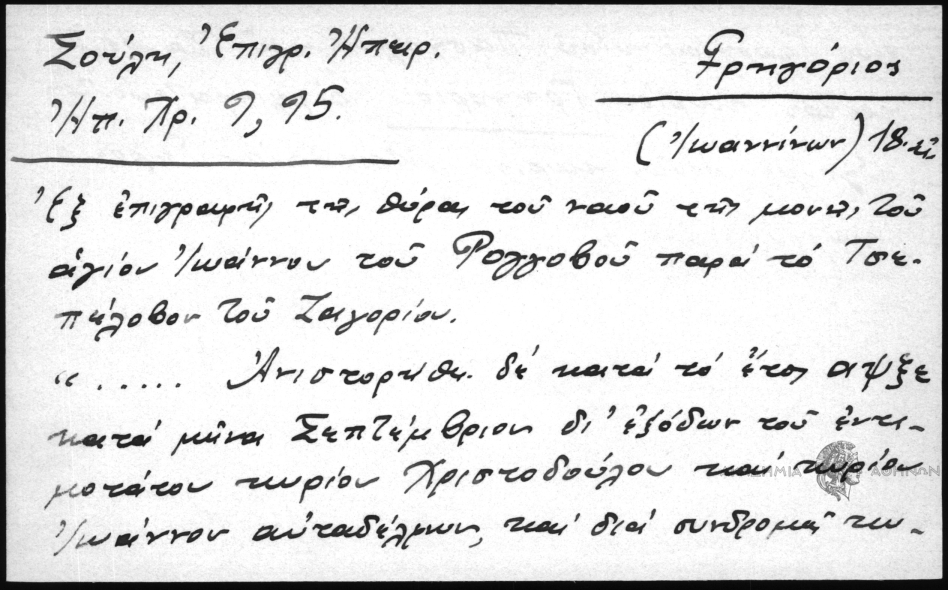 Σούλη, Ἐπιγρ. Ἠπειρ.
Ἠπ. Χρ. 9, 95.
Γρηγόριος
(Ἰωαννίνων) 18.
Ἐξ ἐπιγραφῆς τῆς θύρας τοῦ ναοῦ τῆς μονῆς τοῦ
ἁγίου Ἰωάννου τοῦ Ρογγοβοῦ παρά τό Τσε-
πέλοβον τοῦ Ζαγορίου.
"..... Ἀνιστορήθη δέ κατά τό ἔτος αψξε
κατά μῆνα Σεπτέμβριον δι' ἐξόδων τοῦ ἐντι-
μοτάτου κυρίου Χριστοδούλου καί κυρίου
Ἰωάννου αὐταδέλφων, καί διά συνδρομῆς κυ-
ΑΚΑΔΗΜΙΑ ΑΘΗΝΩΝ